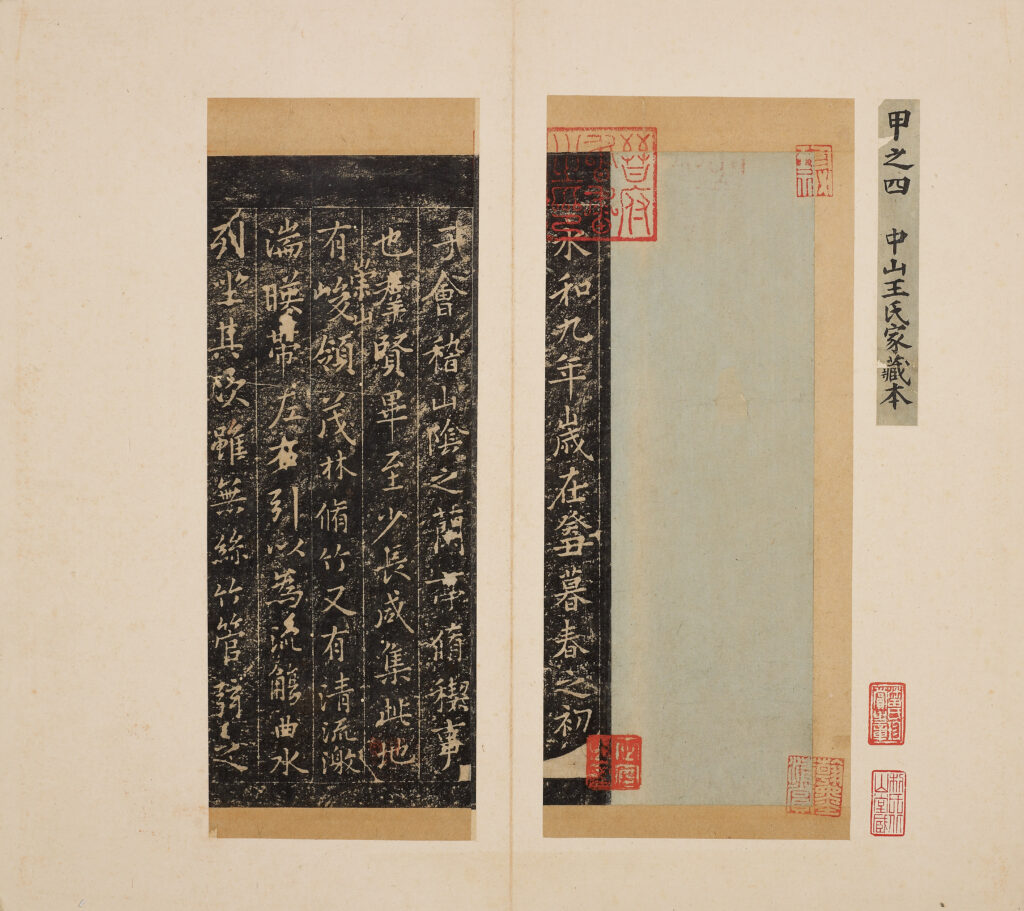 甲之四 中山王氏家藏本
晉府書畫之印
永和九年歲在癸丑暮春之初
于會稽山陰之蘭亭脩稧事
也羣賢畢至少長咸集此地
有崇山峻領茂林脩竹又有清流激
湍暎帶左右引以為流觴曲水
列坐其次雖無絲竹管弦之